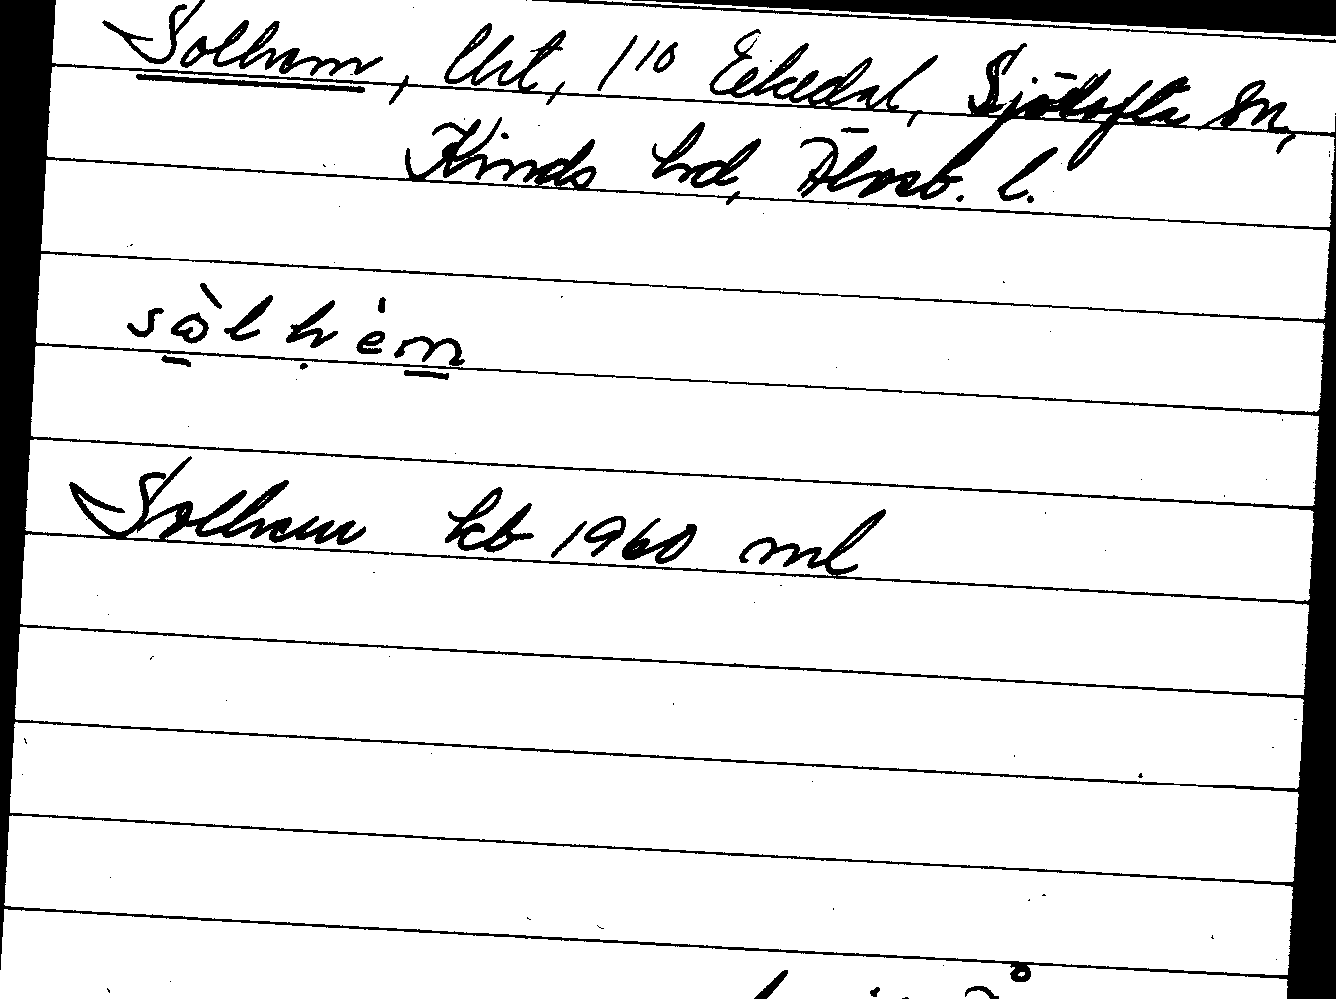 Solhem, lht, 1¹⁰ Eekedal, Sjötofta sn,
Kinds hd, Älvsb. l.
sòlhem
Solhem kb 1960 ml